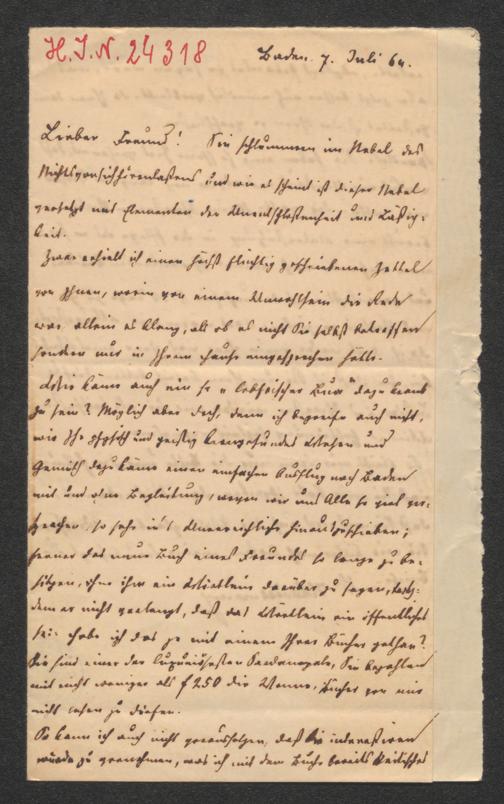 H.I.N. 24318
Baden. 7. Juli 64.
Lieber Freund! Sie schlummern im Nebel des
Nichtsvonsichhörenlaßens und wie es scheint ist dieser Nebel
versetzt mit Elementen der Unentschloßenheit und Läßig-
keit.
Zwar erhielt ich einen höchst flüchtig geschriebenen Zettel
von Ihnen, worin von einem Unwohlsein die Rede
war allein es klang, als ob es nicht Sie selbst betroffen
sondern nur in Ihrem Hause eingesprochen hätte.
Wie käme auch ein so " Bur" dazu krank
zu sein? Möglich aber doch, denn ich begreife auch nicht,
wie Ihr physisch und geistig kerngesundes Wesen und
Gemüth dazu käme einen einfachen Ausflug nach Baden
mit und ohne Begleitung, wovon wir uns Alle so viel ver-
sprachen, so sehr in's Unerreichliche hinauszuschieben;
ferner das neue Buch eines Freundes so lange zu be-
sitzen, ohne ihm ein Wörtlein darüber zu sagen, trotz-
dem er nicht verlangt, daß das Wörtlein ein öffentliches
sei. Habe ich das je mit einem Ihrer Bücher gethan?
Sie sind einer der Sardanapale, Sie bezahlen
mit nicht weniger als f 250 die Wonne, Bücher von mir
nicht lesen zu dürfen.
So kann ich auch nicht voraussetzen, daß Sie interessiren
würde zu vernehmen, was ich mit dem Buche bereits